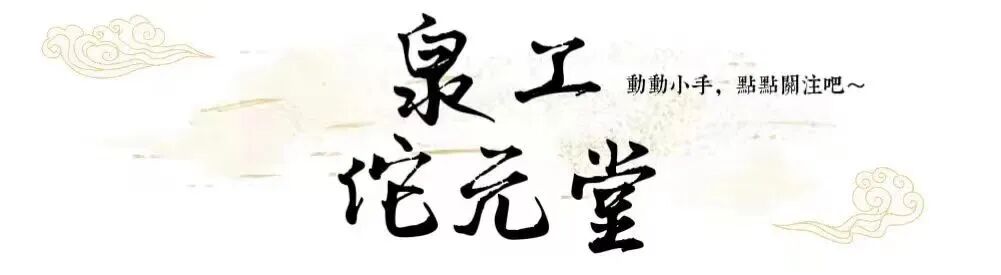 泉工
動動小手，點點關注吧～
佗元堂